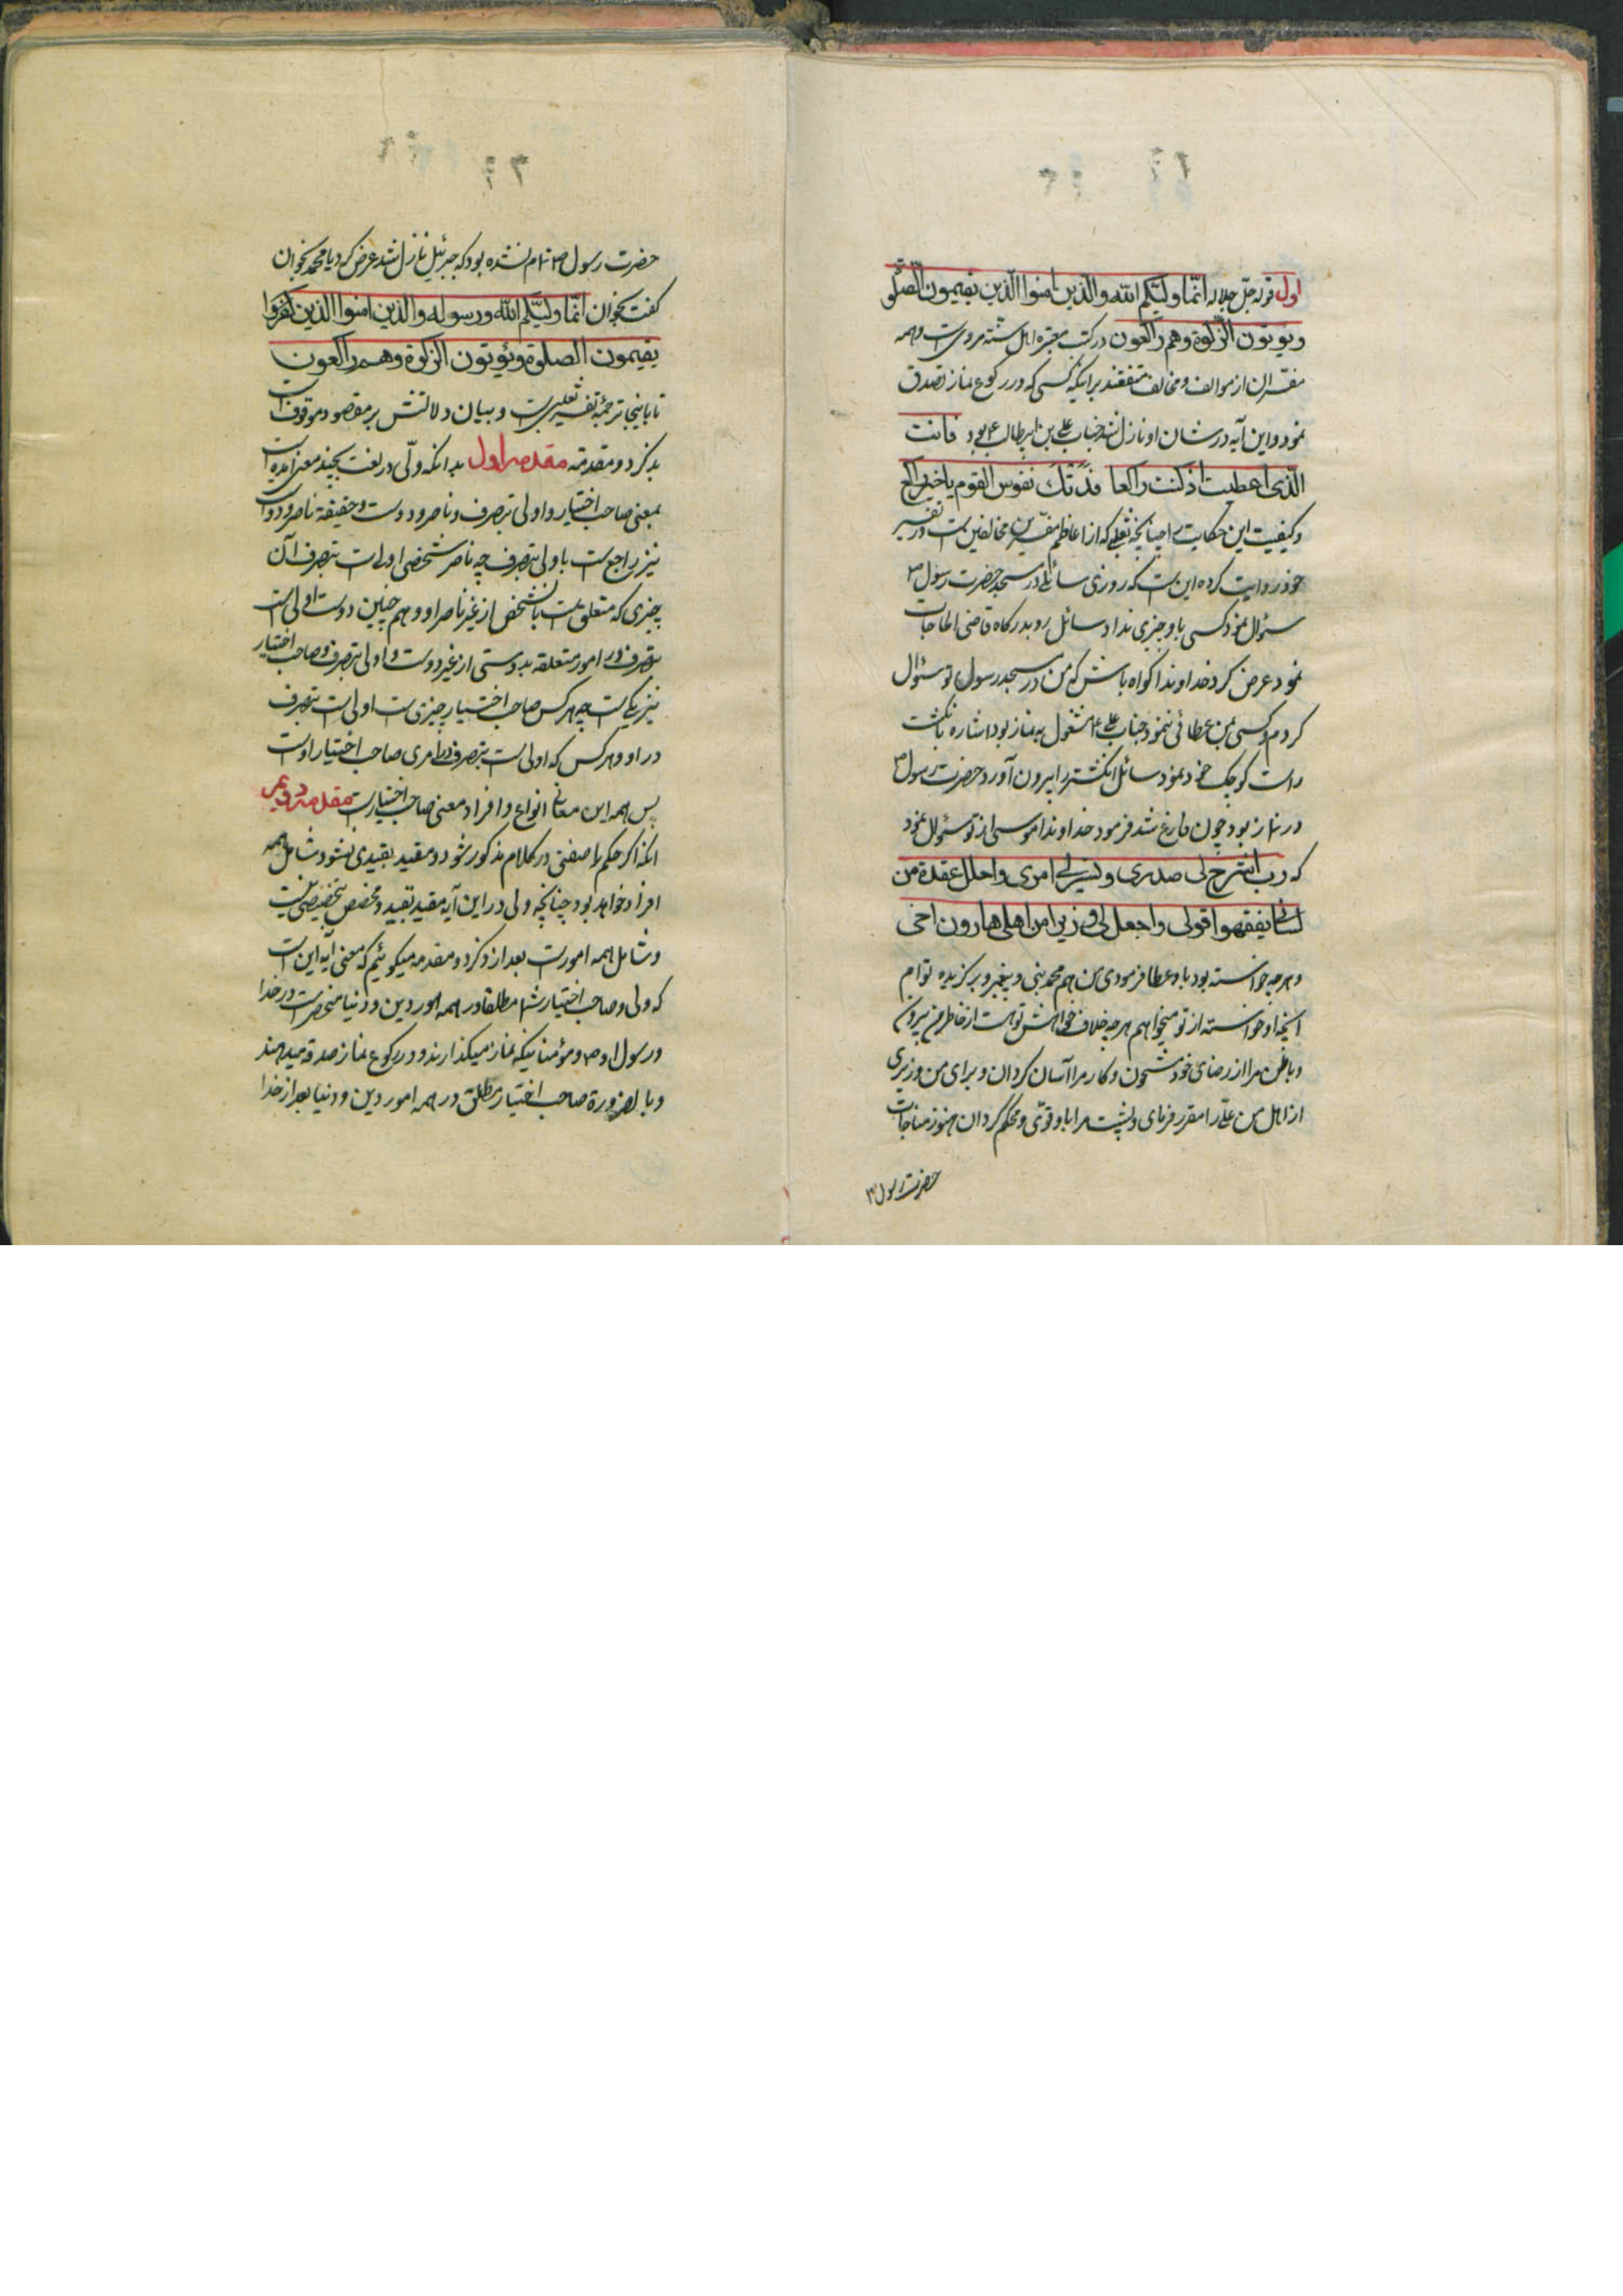 اول قوله جل جلاله انما ولیکم الله والذین امنوا الذین یقیمون الصلوة
ویؤتون الزکوة وهم راکعون در کتب معتبره اهل سنة مرویست وهمه
مفسران از موالف و مخالف متفقند بر اینکه کسی که در رکوع نماز تصدق
نمود و این آیه در شان او نازل شد جناب علی بن ابیطالب ع بود فانت
الذی اعطیت اذ کنت راکعا فدتک نفوس القوم یا خیر راکع
و کیفیت این حکایت چنانچه ثعلبی که از اعاظم مفسرین مخالفین است در تفسیر
خود روایت کرده این است که روزی سائلی در مسجد حضرت رسول ص
سئوال نمود کسی باو چیزی نداد سائل رو بدرگاه قاضی الحاجات
نمود عرض کرد خداوندا کواه باش که من در مسجد رسول تو سئوال
کردم و کسی بمن عطائی ننمود جناب علی ع مشغول به نماز بود اشاره بانکشت
راست کوچک خود نمود سائل انکشتر را بیرون آورد حضرت رسول ص
در نماز بود چون فارغ شد فرمود خداوندا موسی از تو سئوال نمود
که رب اشرح لی صدری ویسرلی امری واحلل عقدة من
لسانی یفقهوا قولی واجعل لی وزیرا من اهلی هارون اخی
و هرچه خواسته بود باو عطا فرمودی من هم محمد نبی و پیغمبر و برکزیده توام
آنچه او خواسته از تو میخواهم هرچه خلاف خواهش تو است از خاطر من بیرون کن
و باطن مرا از رضای خود مشحون و کار مرا آسان کردان و برای من وزیری
از اهل من علی را مقرر فرمای و پشت مرا باو قوی و محکم کردان هنوز مناجات
حضرت رسول ص
حضرت رسول ص تمام نشده بود که جبرئیل نازل شد عرض کرد یا محمد بخوان
کفت بخوان انما ولیکم الله ورسوله والذین امنوا الذین
یقیمون الصلوة ویؤتون الزکوة وهم راکعون
تا باینجا ترجمه تفسیر ثعلبی است و بیان دلالتش بر مقصود موقوف است
بذکر دو مقدمه مقدمه اول بدانکه ولی در لغت بچند معنی آمده است
بمعنی صاحب اختیار و اولی بتصرف و ناصر و دوست و حقیقة ناصر و دوست
نیز راجع است باولی بتصرف چه ناصر شخصی اولی است بتصرف آن
چیزی که متعلق است بآنشخص از غیر ناصر او و هم چنین دوست اولی است
بتصرف در امور متعلقه بدوستی از غیر دوست و اولی بتصرف و صاحب اختیار
نیز یکیست چه هرکس صاحب اختیار چیزیست اولی است بتصرف
در او و هرکس که اولی است بتصرف در امری صاحب اختیار اوست
پس همه این معانی انواع و افراد معنی صاحب اختیارست مقدمه دویم
آنکه اکر حکم یا صفتی در کلام مذکور شود و مقید بقیدی نشود شامل همه
افراد خواهد بود چنانچه ولی در این آیه مقید بقید و مخصص بتخصیصی نیست
و شامل همه امورست بعد از ذکر دو مقدمه میکوئیم که معنی آیه این است
که ولی و صاحب اختیار شما مطلقا در همه امور دین و دنیا منحصرست در خدا
و رسول او ص و مؤمنانیکه نماز میکذارند و در رکوع نماز صدقه میدهند
و بالضرورة صاحب اختیار مطلق در همه امور دین و دنیا بعد از خدا